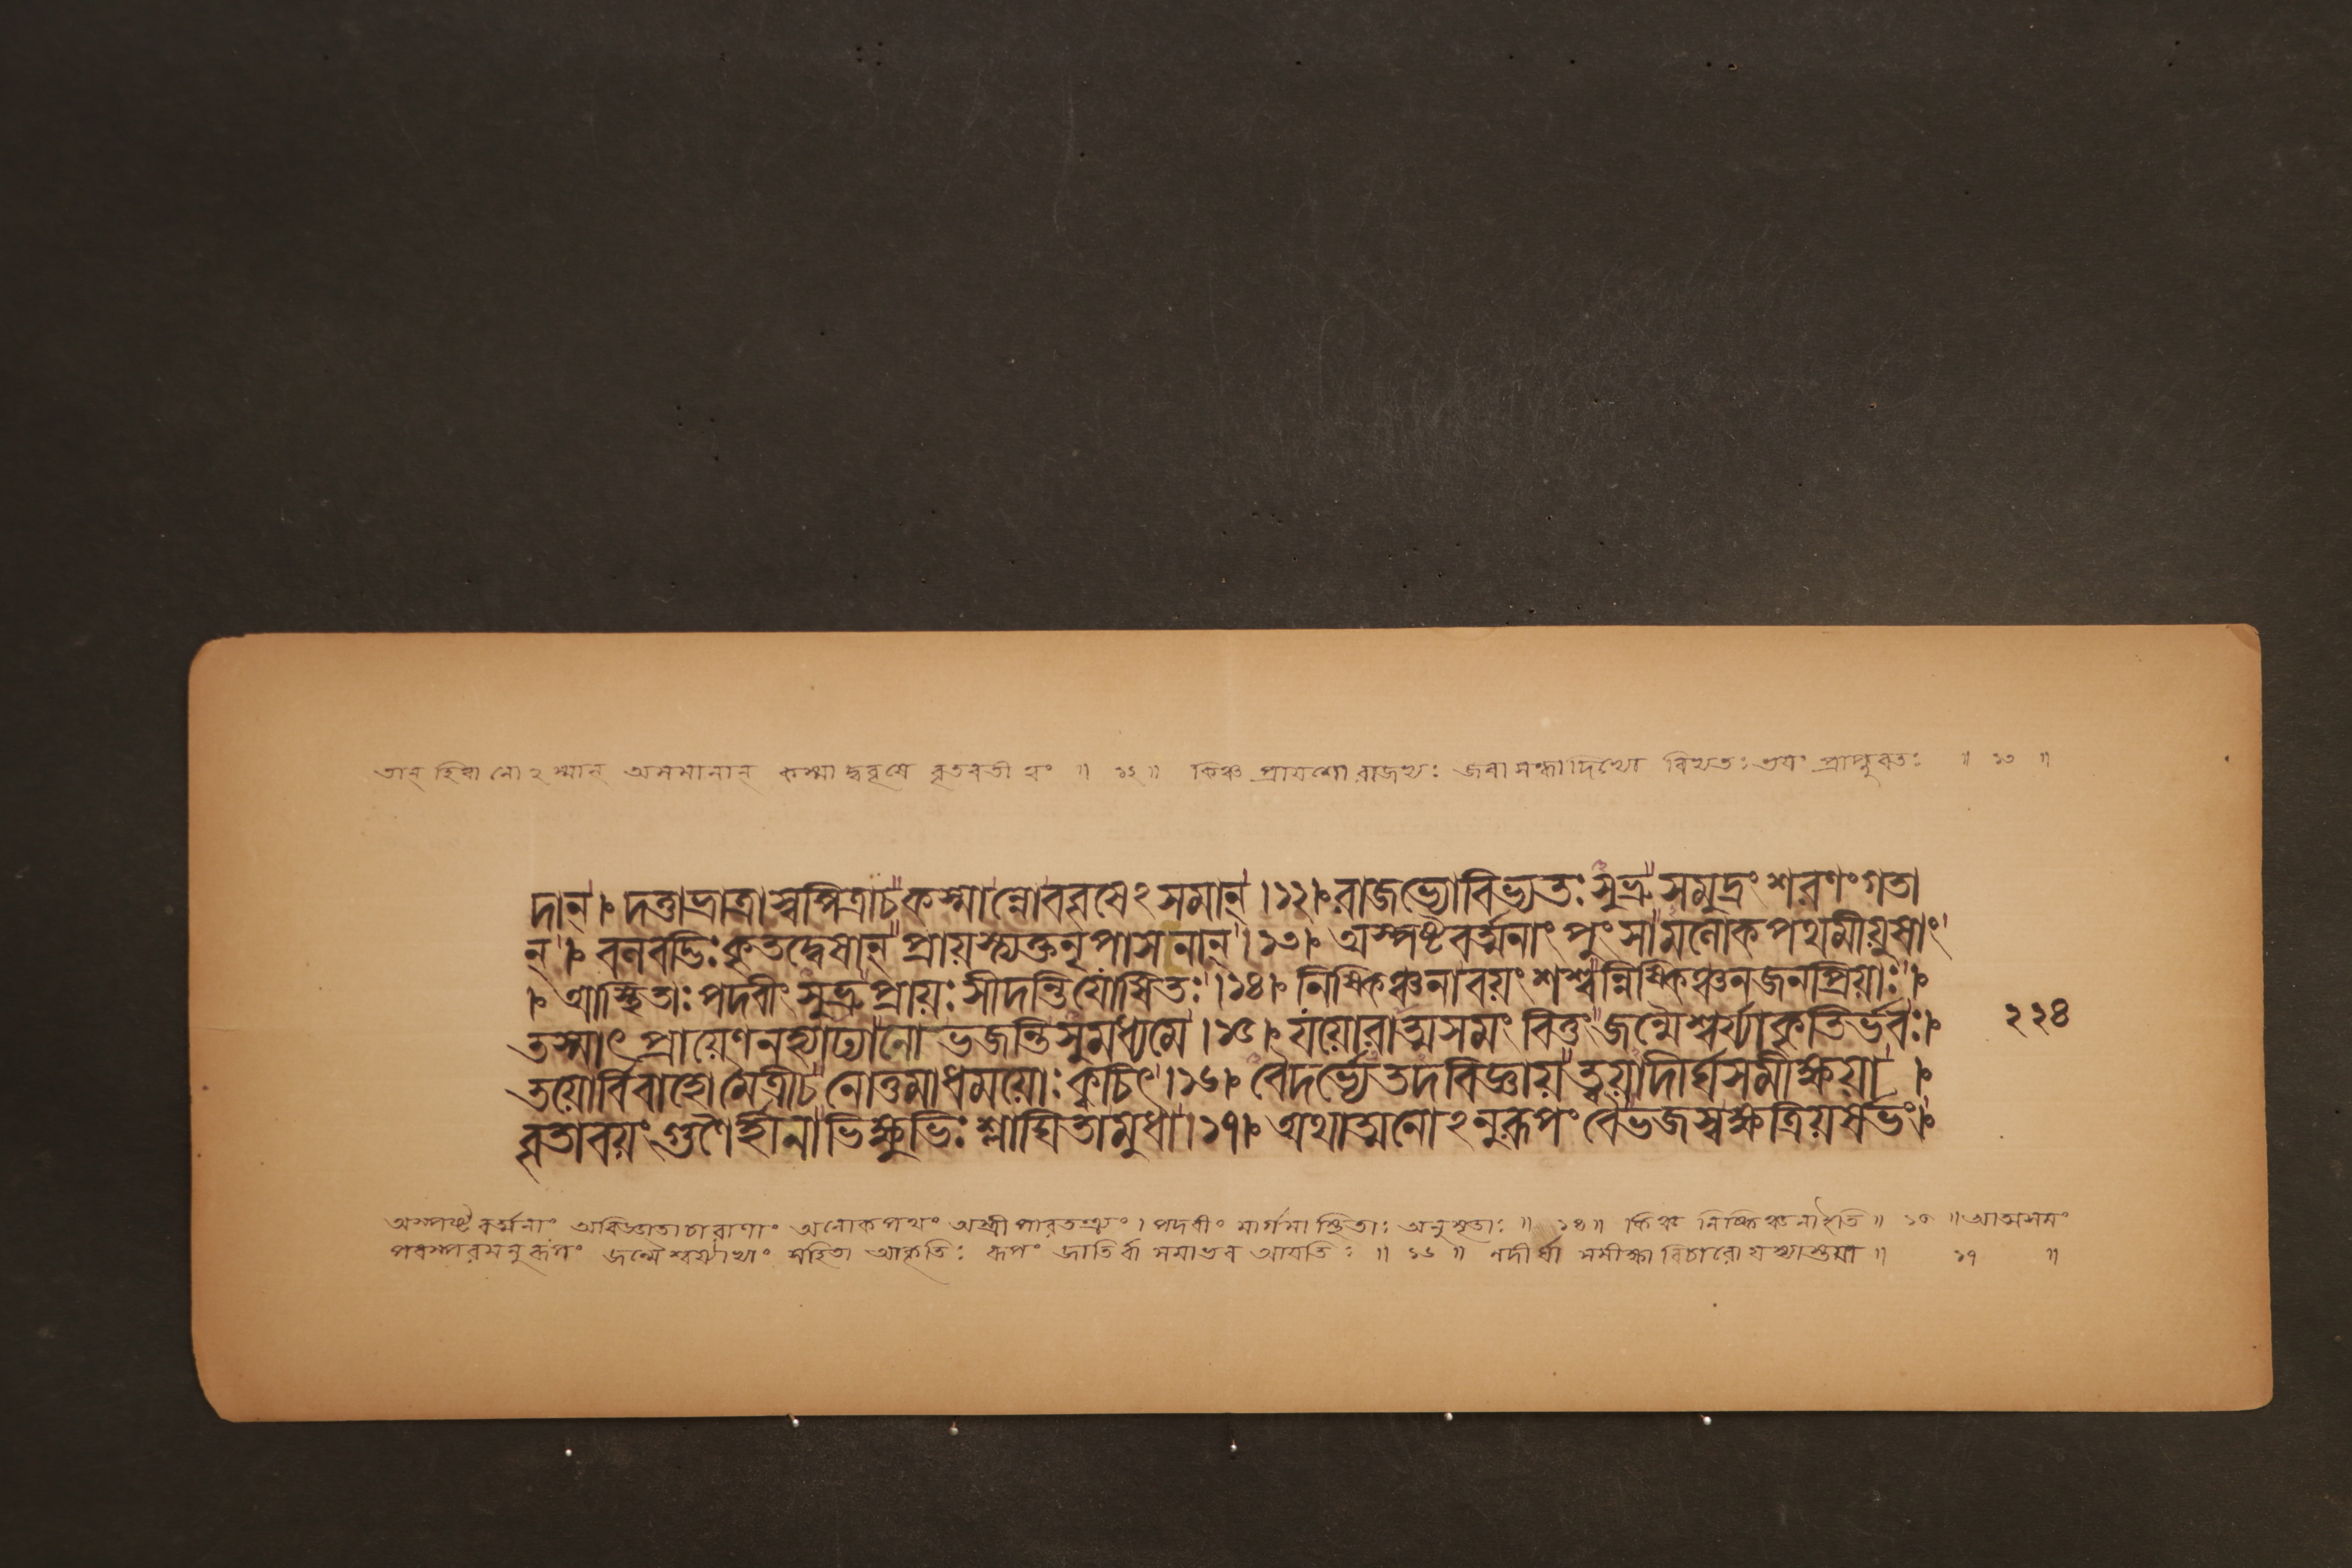 তান হিত্বা নোঽস্মান অসমানান কস্মাদ্ববৃষে বৃতবতী ত্বং ॥ ১২ ॥ কিঞ্চ প্রায়শো রাজভ্যঃ জরাসন্ধাদিভ্যো বিভ্যতঃ ভয়ং প্রাপ্নুবতঃ ॥ ১৩ ॥
দান্। দত্তাভ্রাত্রাস্বপিত্রাচকস্মান্নোববৃষেঽসমান্।১২। রাজভ্যোবিভ্যতঃ সুভ্রু সমুদ্রং শরণং গতা
ন্। বলবদ্ভিঃ কৃতদ্বেষান্ প্রায়স্ত্যক্তনৃপাসনান্।১৩। অস্পষ্টবর্ত্মনাং পুংসামলোকপথমীয়ুষাং
। আস্থিতাঃ পদবীং সুভ্রু প্রায়ঃ সীদন্তিযোষিতঃ।১৪। নিষ্কিঞ্চনাবয়ং শশ্বন্নিষ্কিঞ্চনজনপ্রিয়াঃ।
তস্মাৎ প্রায়েণনহ্যাঢ্যানো ভজন্তিসুমধ্যমে।১৫। যয়োরাত্মসমং বিত্তং জন্মৈশ্বর্য্যাকৃতির্ভবঃ।
২২৪
তয়োর্বিবাহোমৈত্রীচনোত্তমাধময়োঃ ক্বচিৎ।১৬। বৈদর্ভ্যেতদবিজ্ঞায়ত্বয়াদীর্ঘসমীক্ষয়া ।
বৃতাবয়ং গুণৈর্হীনাভিক্ষুভিঃ শ্লাঘিতামুধা।১৭। অথাত্মনোঽনুরূপং বৈভজস্বক্ষত্রিয়র্ষভং।
অস্পষ্টবর্ত্মনাং অবিজ্ঞাতাচারাণাং অলোকপথং অস্ত্রীপারতন্ত্র্যং। পদবীং মার্গমাস্থিতাঃ অনুসৃতাঃ ॥ ১৪ ॥ কিঞ্চ নিষ্কিঞ্চনাইতি ॥ ১৫ ॥ আত্মসমং
পরস্পরমনুরূপং জন্মৈশ্বর্য্যাভ্যাং সহিতা আকৃতিঃ রূপং জাতির্বা সমাভব আয়তিঃ ॥ ১৬ ॥ নদীর্ঘা সমীক্ষা বিচারো যস্যাস্তয়া ॥ ১৭ ॥